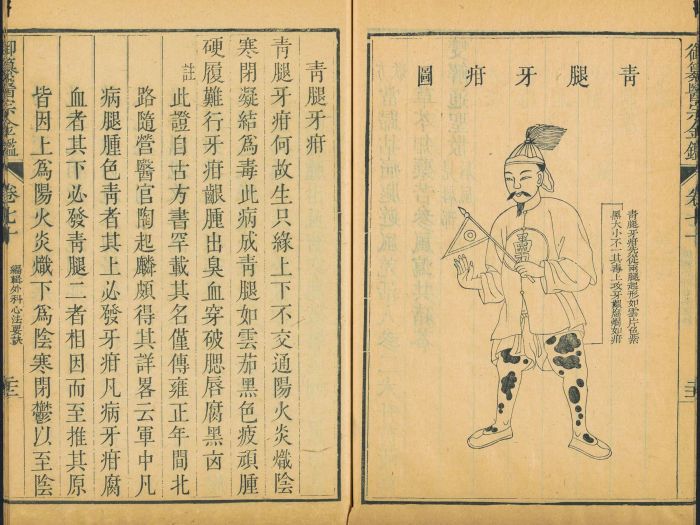 御纂醫宗金鑑
卷七十
青腿牙疳圖
青腿牙疳先從兩腿起形如雲片色紫
黑大小不一其毒上攻牙齦腐爛如疳
青腿牙疳
青腿牙疳何故生只緣上下不交通陽火炎熾陰
寒閉凝結爲毒此病成青腿如雲茄黑色疲頑腫
硬履難行牙疳齦腫出臭血穿破腮唇腐黑凶
註
此證自古方書罕載其名僅傳雍正年間北
路隨營醫官陶起麟頗得其詳畧云軍中凡
病腿腫色青者其上必發牙疳凡病牙疳腐
血者其下必發青腿二者相因而至推其原
皆因上爲陽火炎熾下爲陰寒閉鬱以至陰
御纂醫宗金鑑
卷七十
編輯外科心法要訣